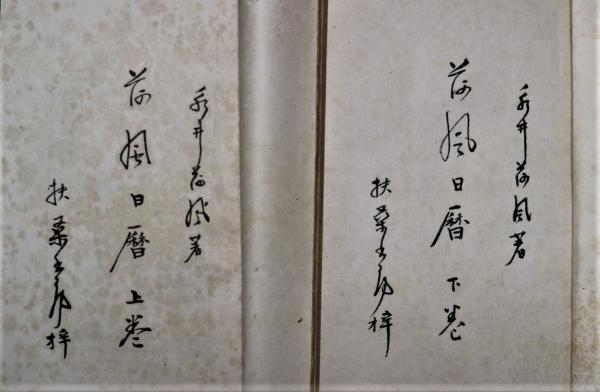 永井荷風著
荷風日暦 上巻
扶桑書房梓
永井荷風著
荷風日暦 下巻
扶桑書房梓